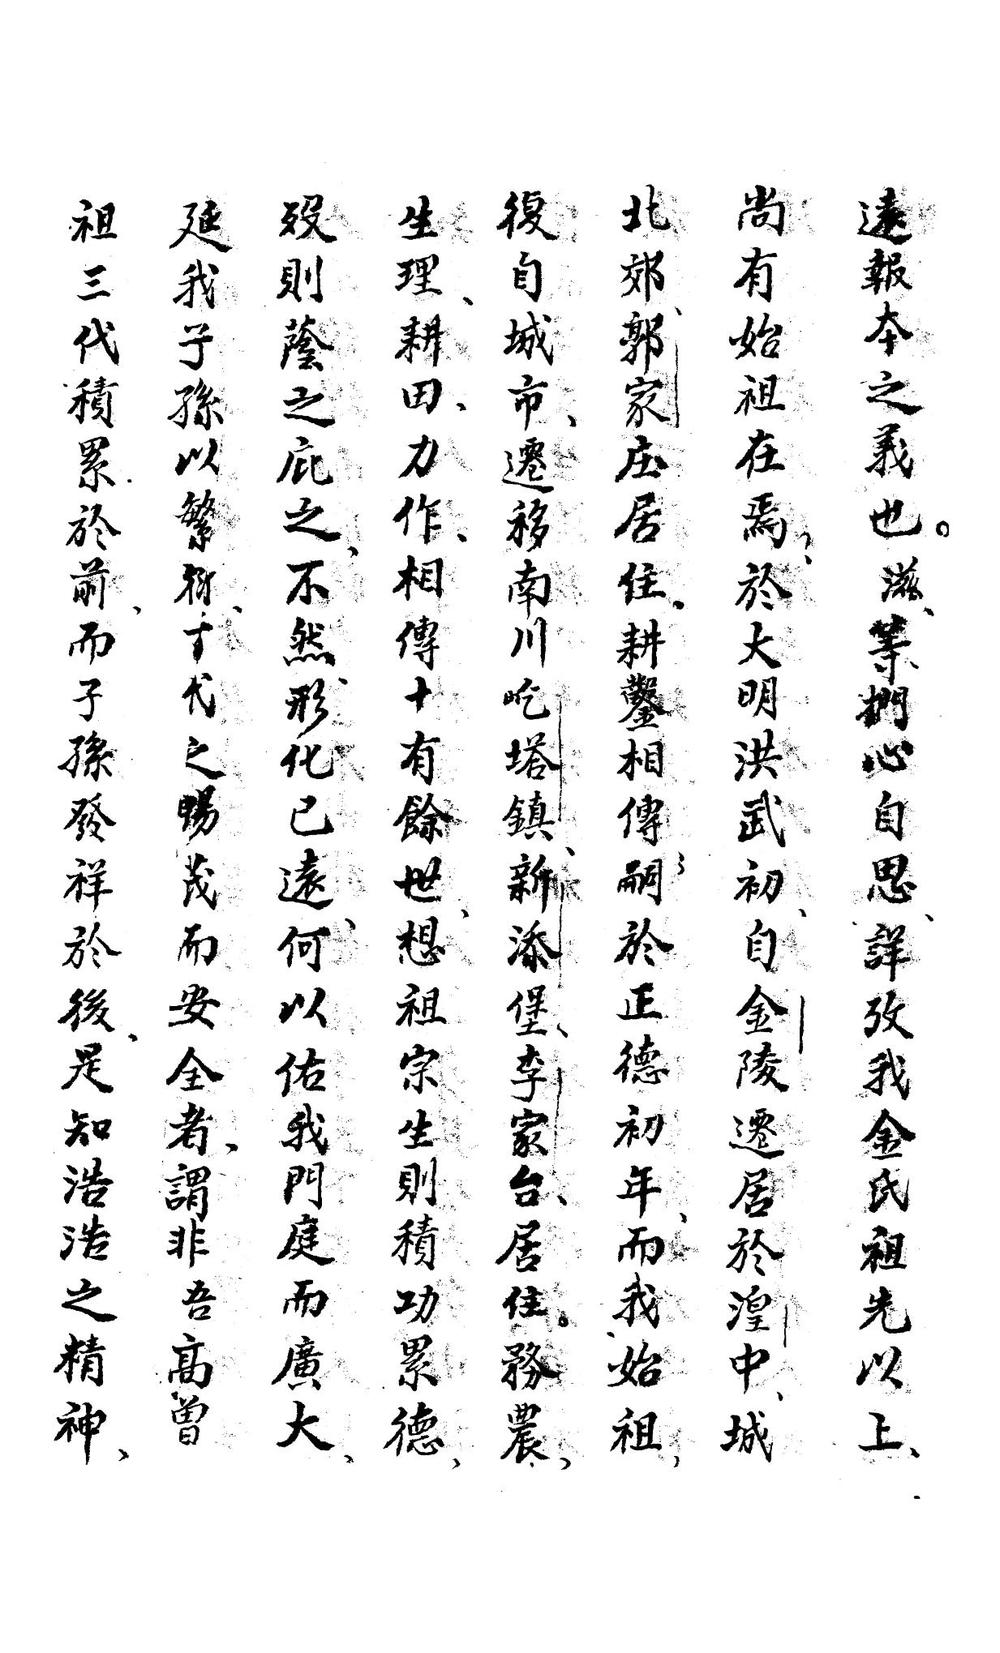 遠報本之義也。滋、等捫心自思、詳攷我金氏祖先以上、
尚有始祖在焉、於大明洪武初、自金陵遷居於湟中、城
北郊、郭家庄居住。耕鑿相傳嗣於正德初年、而我始祖、
復自城市、遷移南川屹塔鎮、新添堡、李家台、居住。務農、
生理、耕田、力作、相傳十有餘世、想祖宗生則積功累德、
歿則蔭之庇之、不然、形化已遠、何以佑我門庭而廣大、
延我子孫以繁衍、十代之賜茂而安全者、謂非吾高曾
祖三代積累於前、而子孫發祥於後、是知浩浩之精神、